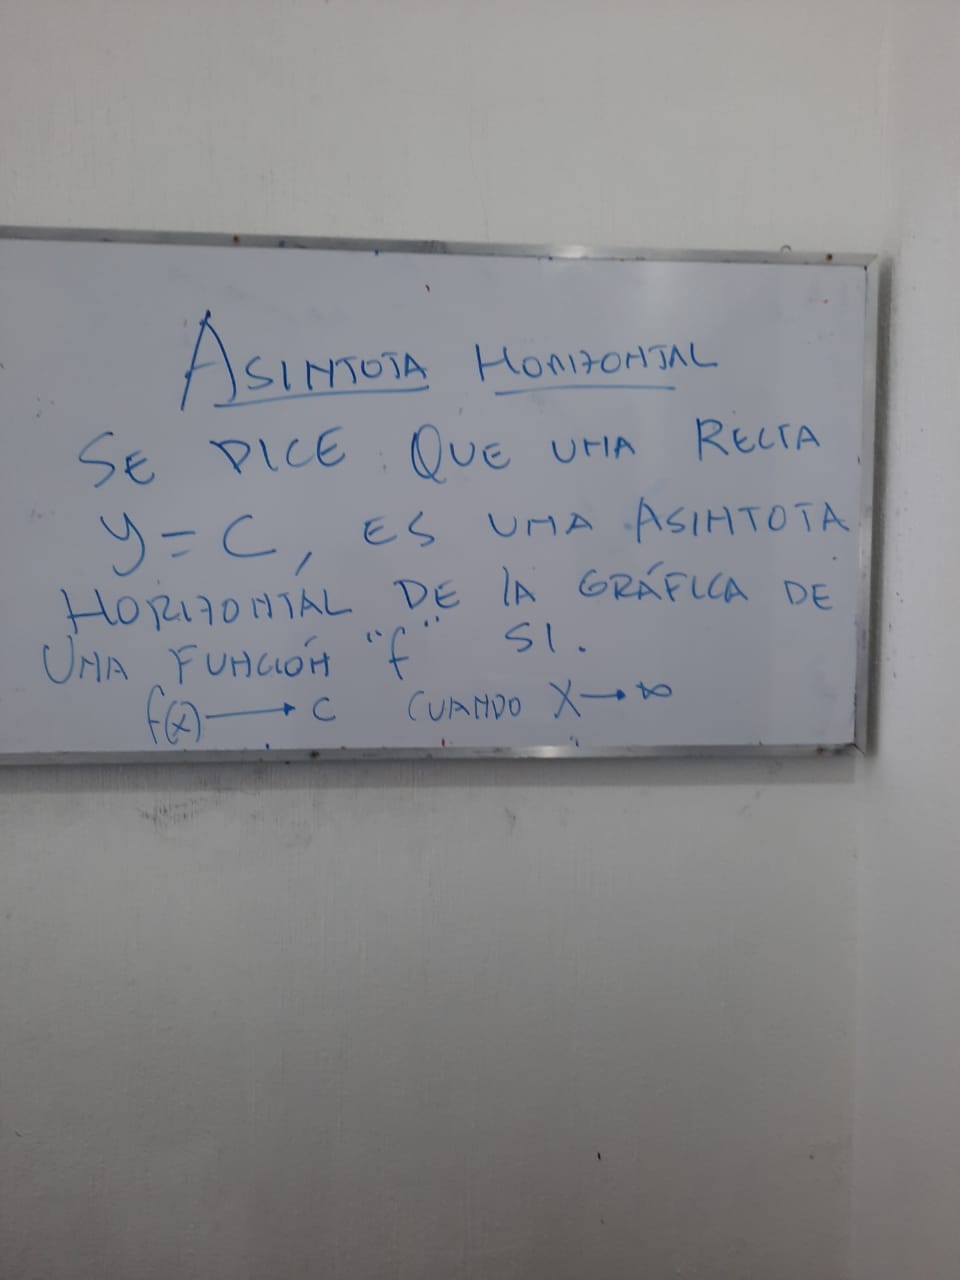 ASINTOTA HORIZONTAL
SE DICE QUE UNA RECTA
y = C, ES UNA ASINTOTA
HORIZONTAL DE LA GRÁFICA DE
UNA FUNCIÓN "f" SI.
f(x) → C CUANDO X → ∞